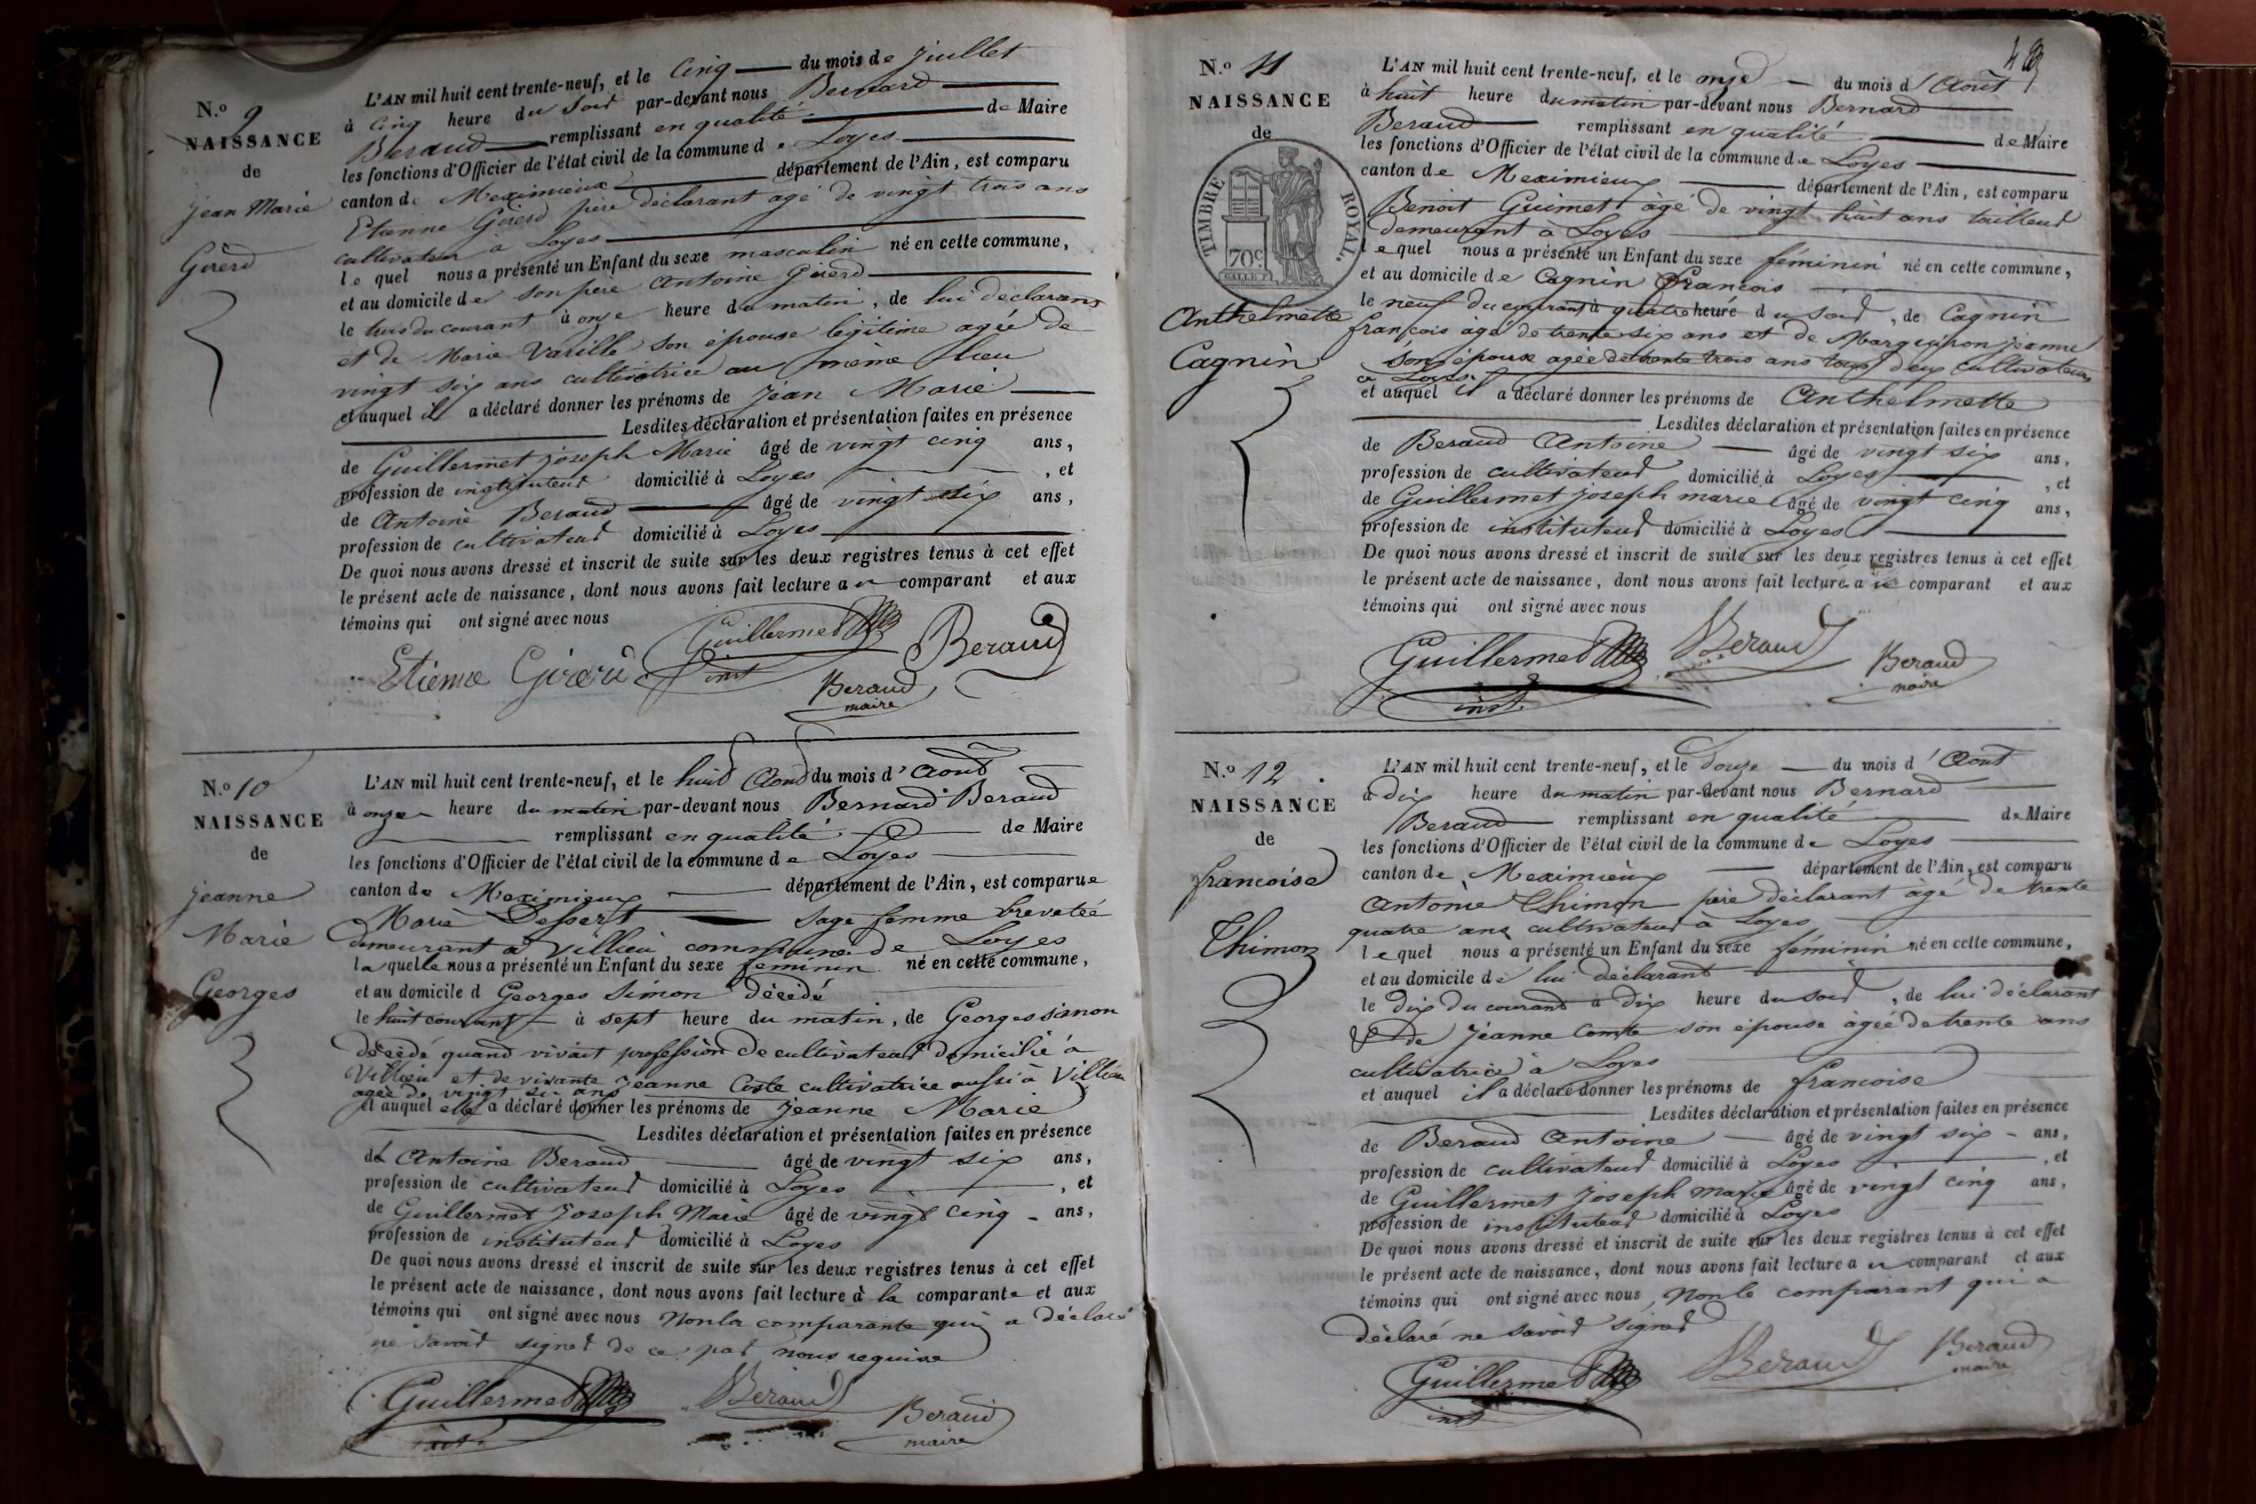 N.º 9
NAISSANCE
de
Jean Marie
Girerd
L'AN mil huit cent trente-neuf, et le cinq du mois de Juillet
à cinq heure du soir par-devant nous Bernard
Beraud remplissant en qualité de Maire
les fonctions d'Officier de l'état civil de la commune de Loyes
canton de Meximieux département de l'Ain, est comparu
Etienne Girerd père déclarant agé de vingt trois ans
cultivateur à Loyes
le quel nous a présenté un Enfant du sexe masculin né en cette commune,
et au domicile de son père Antoine Girerd
le trois du courant à onze heure du matin, de lui déclarant
et de Marie Varille son épouse légitime agée de
vingt six ans cultivatrice au même lieu
et auquel il a déclaré donner les prénoms de Jean Marie
Lesdites déclaration et présentation faites en présence
de Guillermet joseph Marie âgé de vingt cinq ans,
profession de instituteur domicilié à Loyes, et
de Antoine Beraud âgé de vingt six ans,
profession de cultivateur domicilié à Loyes
De quoi nous avons dressé et inscrit de suite sur les deux registres tenus à cet effet
le présent acte de naissance, dont nous avons fait lecture au comparant et aux
témoins qui ont signé avec nous
Etienne Girerd Guillermet Beraud
inst Beraud
maire
N.º 10
NAISSANCE
de
Jeanne
Marie
Georges
L'AN mil huit cent trente-neuf, et le huit Aout du mois d'Aout
à onze heure du matin par-devant nous Bernard Beraud
remplissant en qualité de Maire
les fonctions d'Officier de l'état civil de la commune de Loyes
canton de Meximieux département de l'Ain, est comparue
Marie Dessert sage femme brevetée
demeurant à Villieu commune de Loyes
la quelle nous a présenté un Enfant du sexe feminin né en cette commune,
et au domicile d Georges Simon décédé
le huit courant à sept heure du matin, de Georges simon
décédé quand vivait profession de cultivateur domicilié à
Villieu et de vivante Jeanne Coste cultivatrice aussi à Villieu
agée de vingt six ans
et auquel elle a déclaré donner les prénoms de Jeanne Marie
Lesdites déclaration et présentation faites en présence
de Antoine Beraud âgé de vingt six ans,
profession de cultivateur domicilié à Loyes, et
de Guillermet Joseph Marie âgé de vingt cinq ans,
profession de instituteur domicilié à Loyes
De quoi nous avons dressé et inscrit de suite sur les deux registres tenus à cet effet
le présent acte de naissance, dont nous avons fait lecture à la comparante et aux
témoins qui ont signé avec nous Non la comparante qui a déclaré
ne savoir signer de ce par nous requise
Guillermet Beraud Beraud
inst maire
N.º 11
NAISSANCE
de
TIMBRE ROYAL
70c
Anthelmette
Cagnin
L'AN mil huit cent trente-neuf, et le onze du mois d'Aout
à huit heure du matin par-devant nous Bernard
Beraud remplissant en qualité de Maire
les fonctions d'Officier de l'état civil de la commune de Loyes
canton de Meximieux département de l'Ain, est comparu
Benoit Guimet âgé de vingt huit ans tailleur
demeurant à Loyes
le quel nous a présenté un Enfant du sexe féminin né en cette commune,
et au domicile de Cagnin François
le neuf du courant à quatre heure du soir, de Cagnin
françois âgé de trente six ans et de Marguiron jeanne
son épouse agée de trente trois ans tous deux cultivateurs
à Loyes
et auquel il a déclaré donner les prénoms de Anthelmette
Lesdites déclaration et présentation faites en présence
de Beraud Antoine âgé de vingt six ans,
profession de cultivateur domicilié à Loyes, et
de Guillermet joseph marie âgé de vingt cinq ans,
profession de instituteur domicilié à Loyes
De quoi nous avons dressé et inscrit de suite sur les deux registres tenus à cet effet
le présent acte de naissance, dont nous avons fait lecture au comparant et aux
témoins qui ont signé avec nous
Guillermet Beraud Beraud
inst. maire
N.º 12
NAISSANCE
de
francoise
Thimon
L'AN mil huit cent trente-neuf, et le douze du mois d'Aout
à dix heure du matin par-devant nous Bernard
Beraud remplissant en qualité de Maire
les fonctions d'Officier de l'état civil de la commune de Loyes
canton de Meximieux département de l'Ain, est comparu
Antoine Thimon père déclarant agé de trente
quatre ans cultivateur à Loyes
le quel nous a présenté un Enfant du sexe féminin né en cette commune,
et au domicile de lui déclarant
le dix du courant à dix heure du soir, de lui déclarant
& de Jeanne Comte son épouse âgée de trente ans
cultivatrice à Loyes
et auquel il a déclaré donner les prénoms de francoise
Lesdites déclaration et présentation faites en présence
de Beraud Antoine âgé de vingt six ans,
profession de cultivateur domicilié à Loyes, et
de Guillermet Joseph Marie âgé de vingt cinq ans,
profession de instituteur domicilié à Loyes
De quoi nous avons dressé et inscrit de suite sur les deux registres tenus à cet effet
le présent acte de naissance, dont nous avons fait lecture au comparant et aux
témoins qui ont signé avec nous Non le comparant qui a
déclaré ne savoir signer
Guillermet Beraud Beraud
inst maire